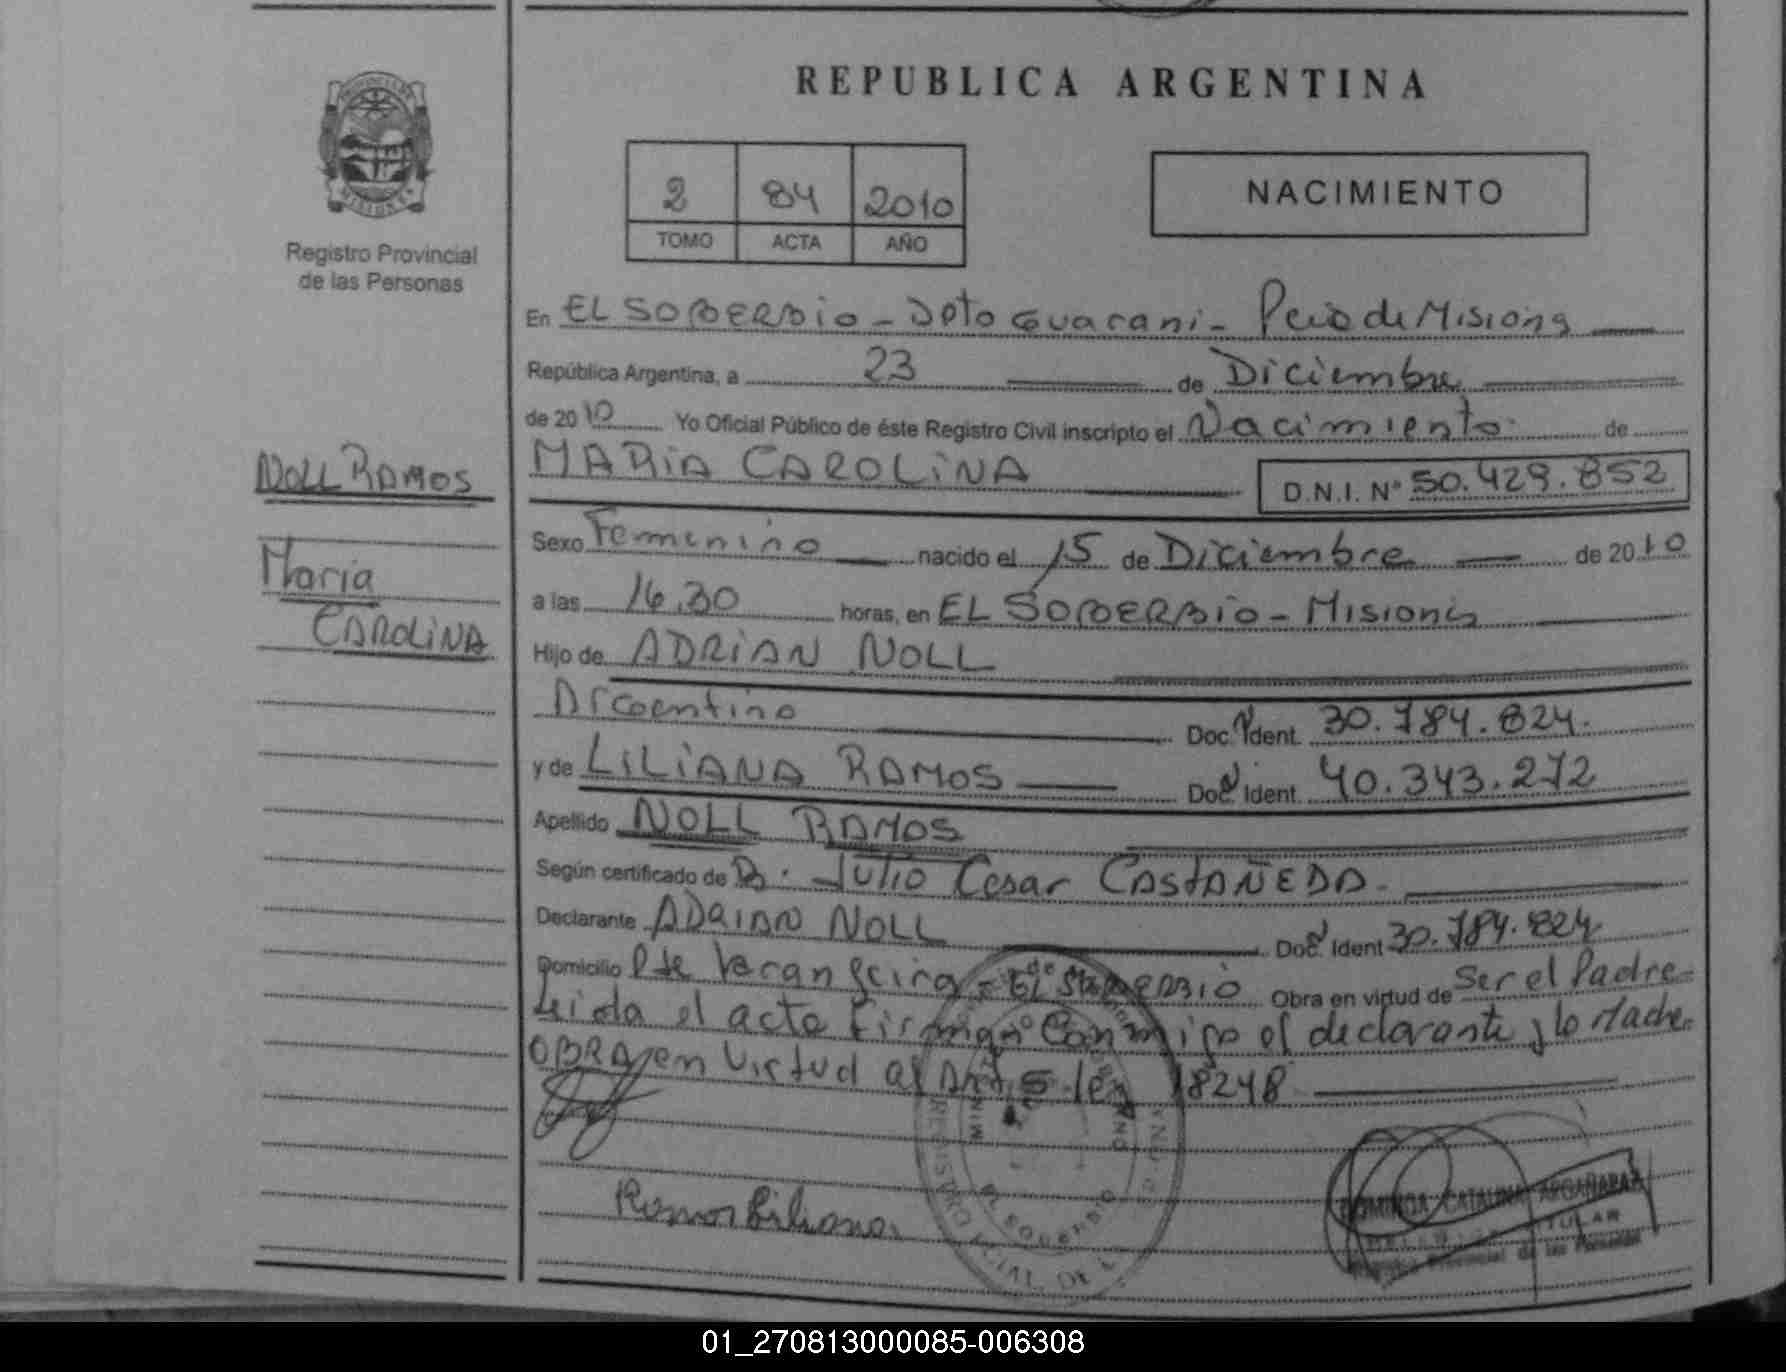 REPUBLICA ARGENTINA
2 84 2010
TOMO ACTA AÑO
NACIMIENTO
Registro Provincial
de las Personas
NOLL RAMOS
Maria
CAROLINA
En EL SOBERBIO - Dpto Guarani - Pcia de Misiones
República Argentina, a 23 de Diciembre
de 2010 Yo Oficial Público de éste Registro Civil inscripto el Nacimiento de
MARIA CAROLINA D.N.I. Nº 50.429.852
Sexo Femenino nacido el 15 de Diciembre de 2010
a las 16.30 horas, en EL SOBERBIO - Misiones
Hijo de ADRIAN NOLL
Argentino Doc. Ident. 30.784.824.
y de LILIANA RAMOS Doc. Ident. 40.343.272
Apellido NOLL RAMOS
Según certificado de Dr. JULIO Cesar CASTAÑEDA.
Declarante ADRIAN NOLL Doc. Ident 30.784.824
Domicilio Pje Varangeira - EL SOBERBIO Obra en virtud de Ser el Padre
Leida el acta Firman Conmigo el declarante y la Madre.
OBRA en Virtud al Art 5 ley 18248
Ramos Liliana.
EL SOBERBIO
DOMINGA CATALINA ARGAÑARAZ
TITULAR
Provincial de las Personas
01_270813000085-006308